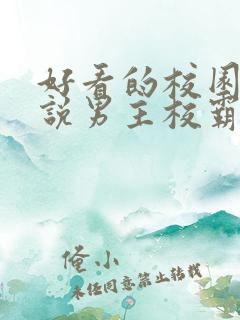 好看的校园
說男主校霸
俺小
未经同意禁止转载